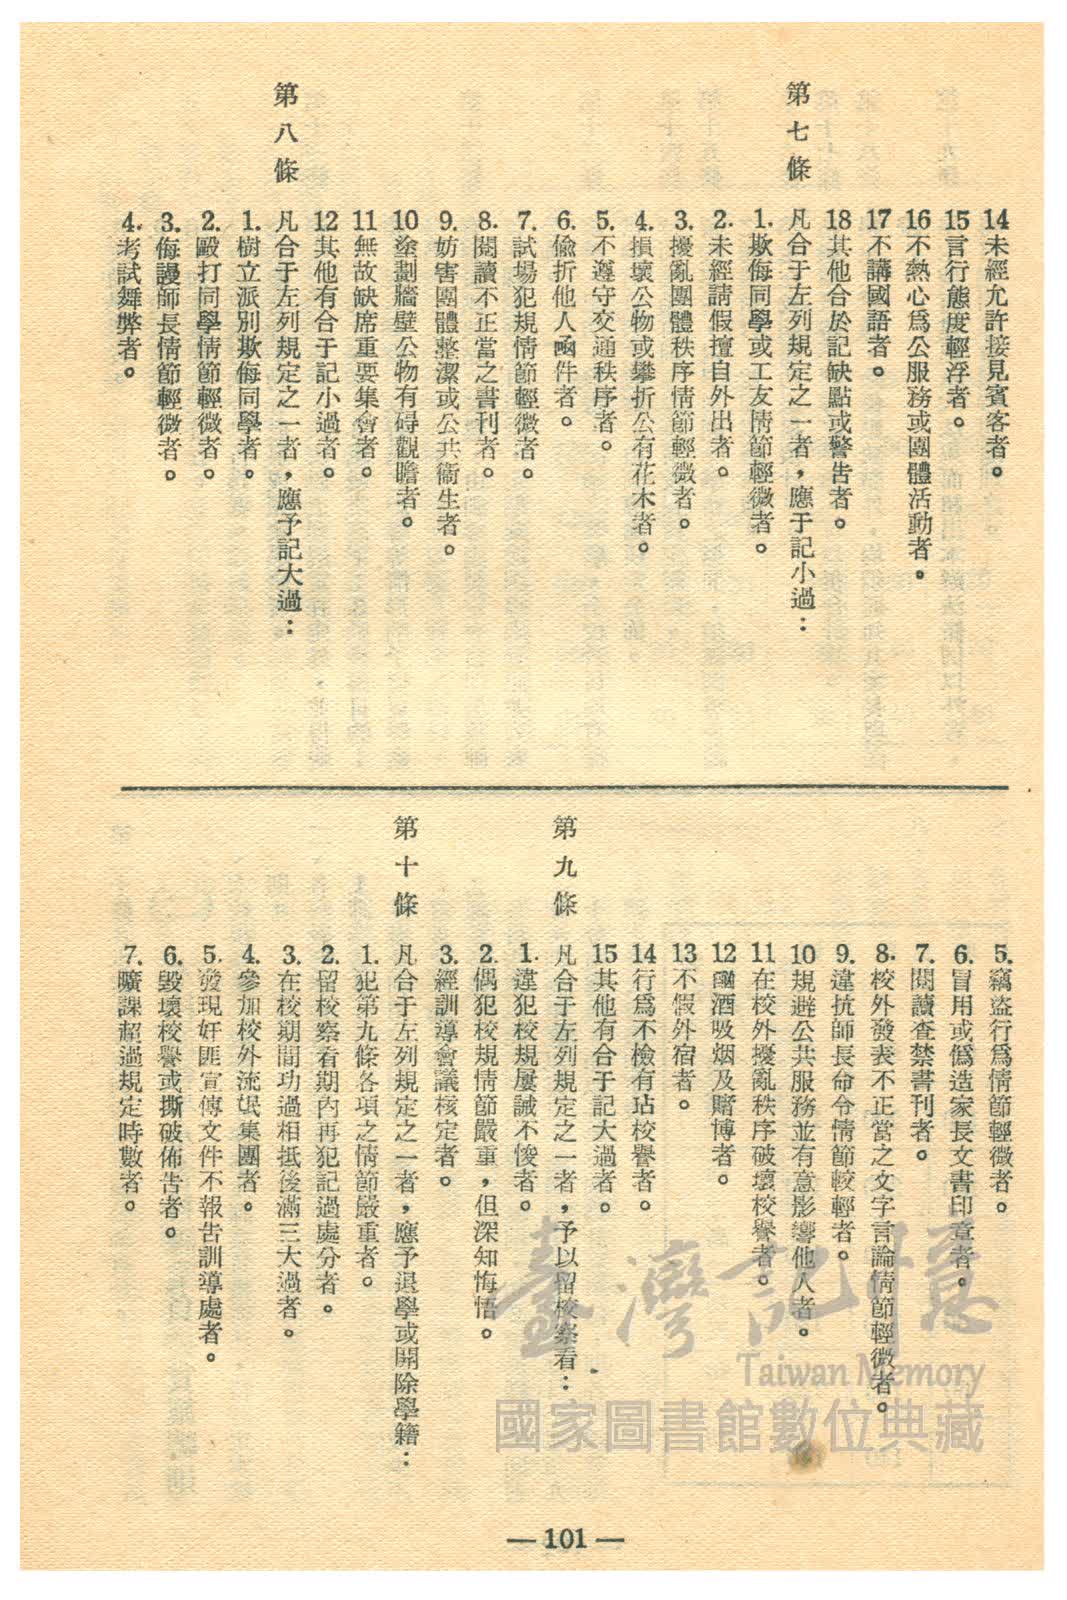 14未經允許接見賓客者。
15言行態度輕浮者。
16不熱心爲公服務或團體活動者。
17不講國語者。
18其他合於記缺點或警告者。
第七條　凡合于左列規定之一者，應于記小過：
1.欺侮同學或工友情節輕微者。
2.未經請假擅自外出者。
3.擾亂團體秩序情節輕微者。
4.損壞公物或攀折公有花木者。
5.不遵守交通秩序者。
6.偸折他人函件者。
7.試場犯規情節輕微者。
8.閱讀不正當之書刊者。
9.妨害團體整潔或公共衞生者。
10塗劃牆壁公物有碍觀瞻者。
11無故缺席重要集會者。
12其他有合于記小過者。
第八條　凡合于左列規定之一者，應予記大過：
1.樹立派別欺侮同學者。
2.毆打同學情節輕微者。
3.侮謾師長情節輕微者。
4.考試舞弊者。
5.竊盜行爲情節輕微者。
6.冒用或僞造家長文書印章者。
7.閱讀查禁書刊者。
8.校外發表不正當之文字言論情節輕微者。
9.違抗師長命令情節較輕者。
10規避公共服務並有意影響他人者。
11在校外擾亂秩序破壞校譽者。
12酗酒吸烟及賭博者。
13不假外宿者。
14行爲不檢有玷校譽者。
15其他有合于記大過者。
第九條　凡合于左列規定之一者，予以留校察看：
1.違犯校規屢誡不悛者。
2.偶犯校規情節嚴重，但深知悔悟。
3.經訓導會議核定者。
第十條　凡合于左列規定之一者，應予退學或開除學籍：
1.犯第九條各項之情節嚴重者。
2.留校察看期內再犯記過處分者。
3.在校期間功過相抵後滿三大過者。
4.參加校外流氓集團者。
5.發現奸匪宣傳文件不報告訓導處者。
6.毀壞校譽或撕破佈告者。
7.曠課超過規定時數者。
— 101 —
臺灣記憶
Taiwan Memory
國家圖書館數位典藏